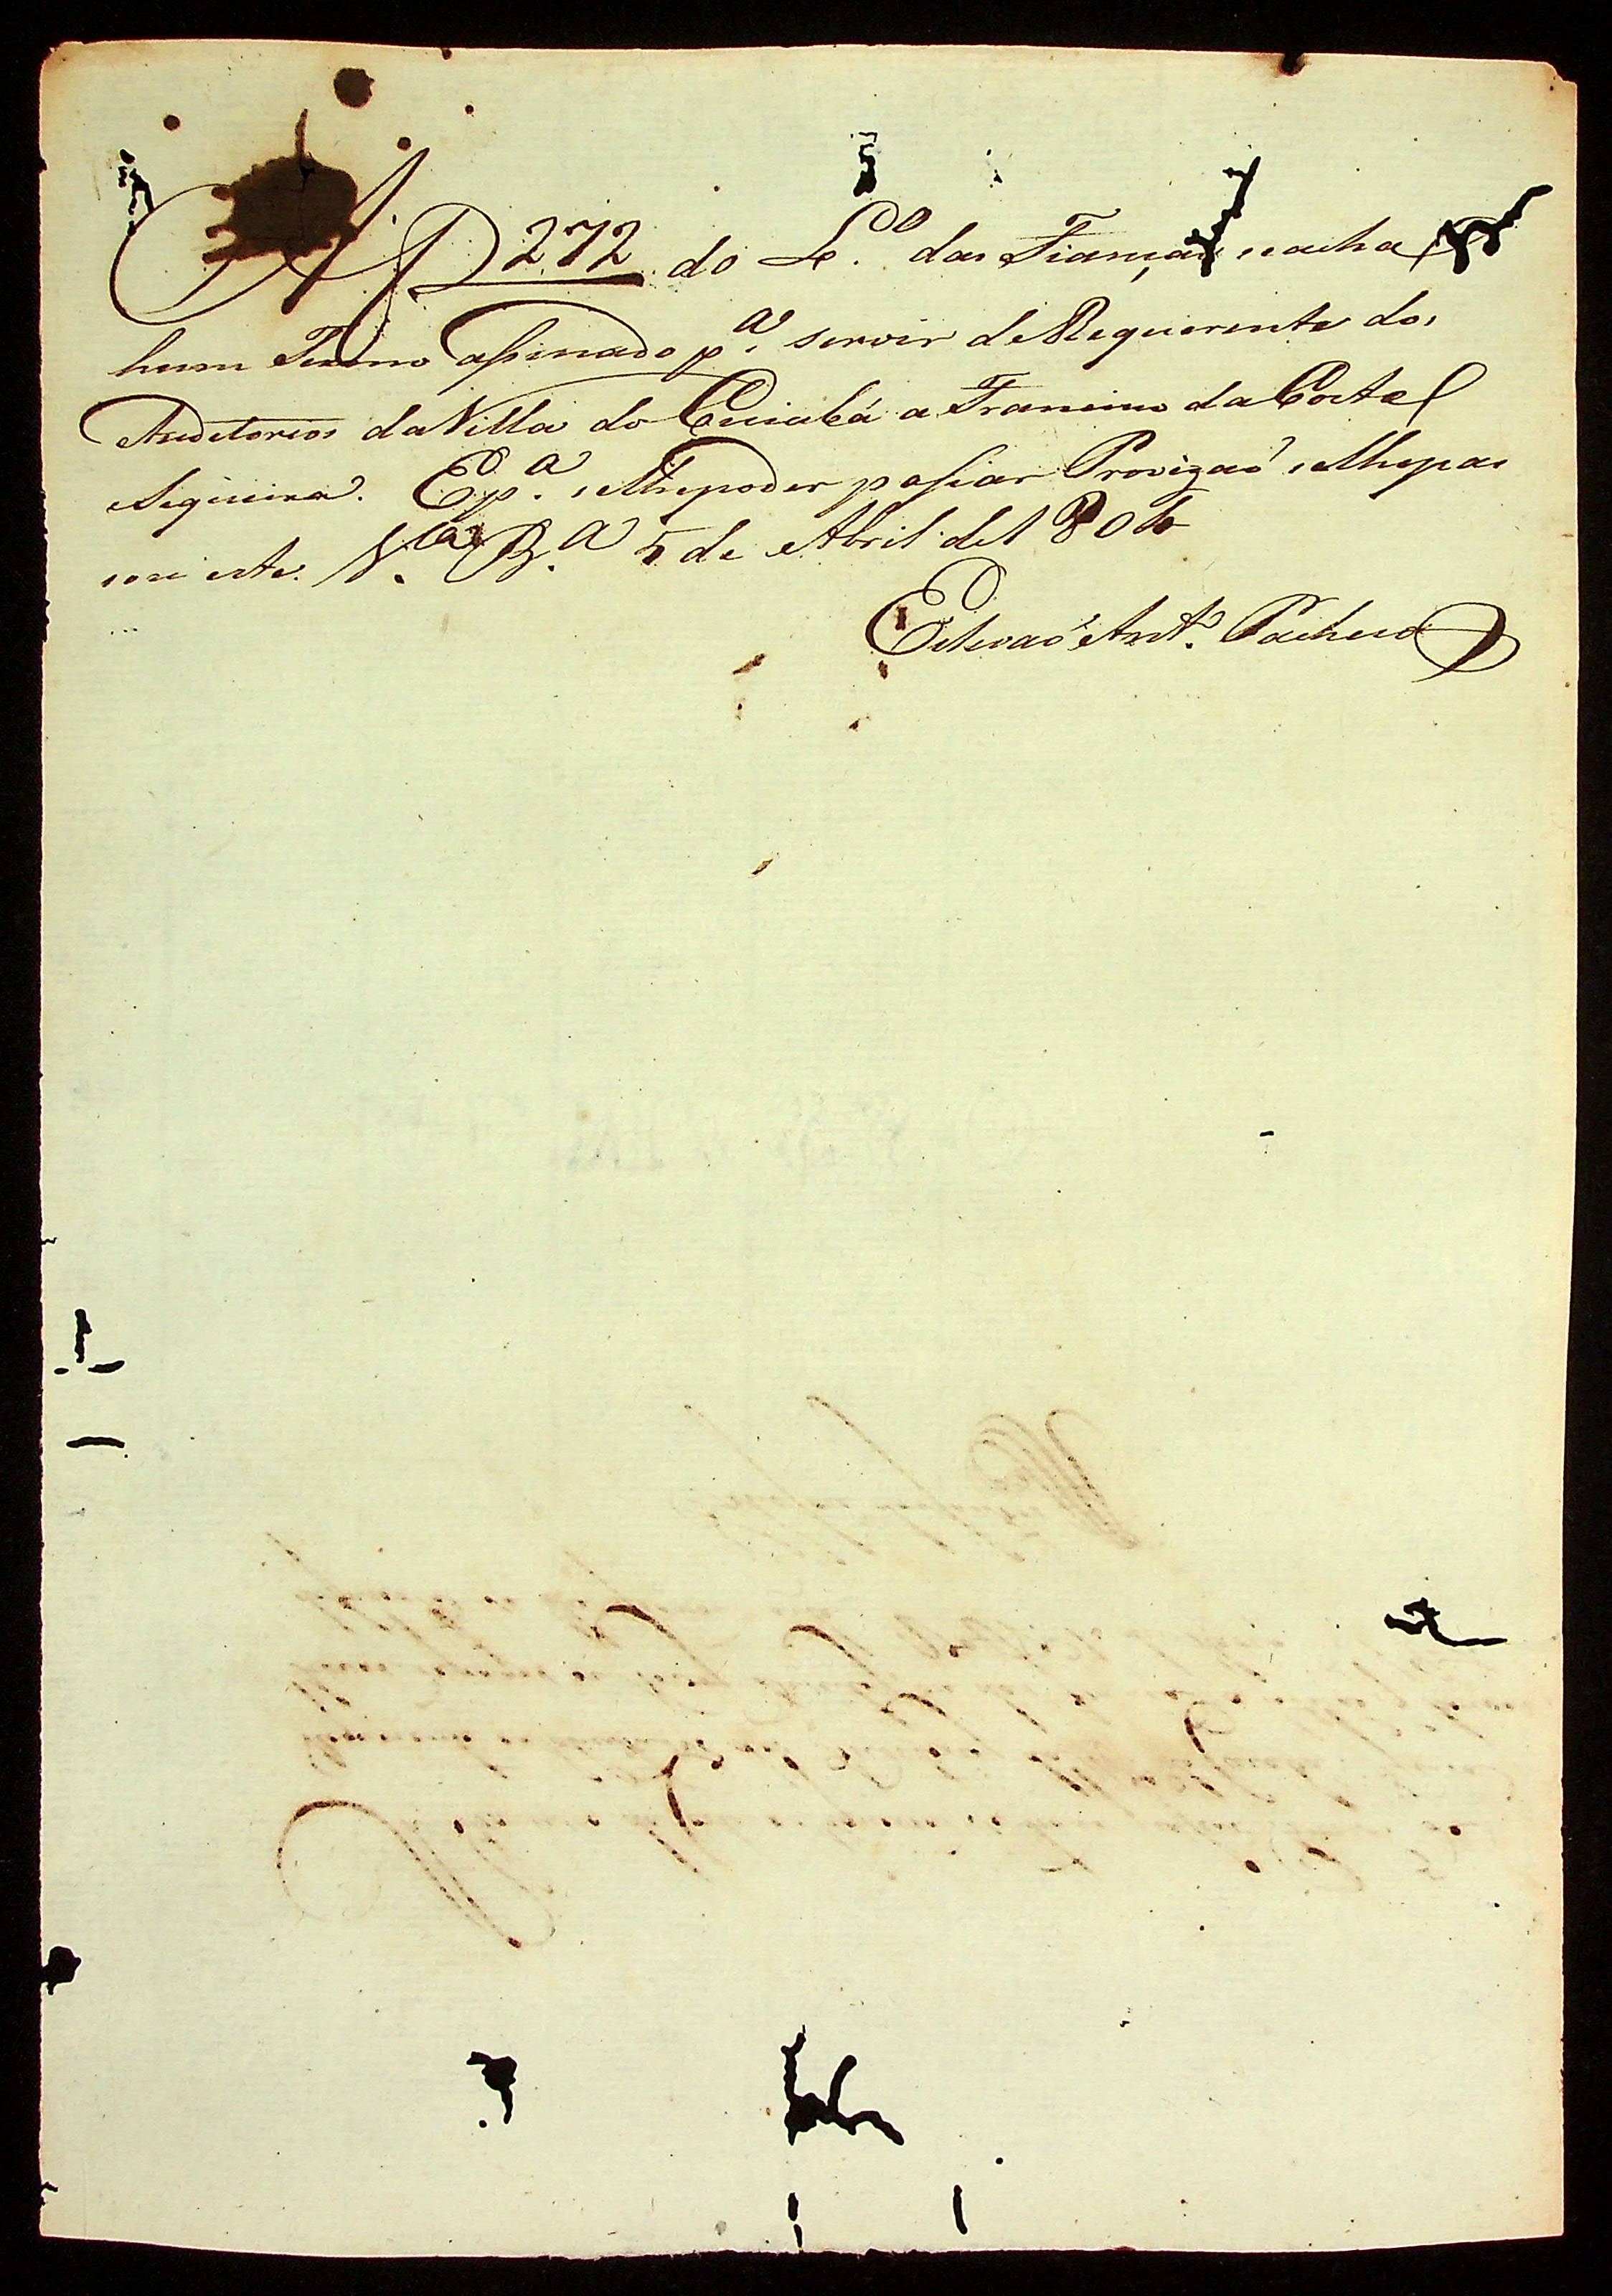 Af 272 do L.º das Fianças se acha
hum Termo assinado p.ª servir de Requerente dos
Auditorios da Villa do Cuiabá a Francisco da Costa
Siqueira. E p.ª se lhe poder passar Provizaõ se lhe pas
sou este. V.ª B.ª 5 de Abril de 1806
Estevaõ Ant.º Pacheco